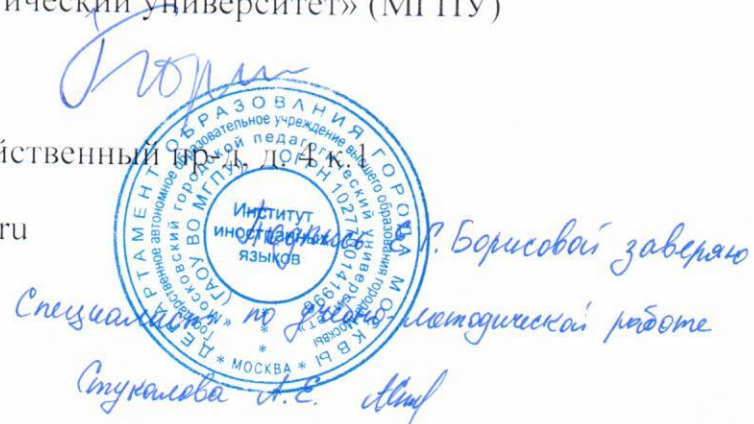 ический университет» (МГПУ)
йственный пр-д, д. 4 к.1
ru
ДЕПАРТАМЕНТ ОБРАЗОВАНИЯ ГОРОДА МОСКВЫ
* МОСКВА *
Государственное автономное образовательное учреждение высшего образования города Москвы
«Московский городской педагогический университет»
(ГАОУ ВО МГПУ) ОГРН
Институт
иностранных
языков
Подпись Е.Г. Борисовой заверяю
Специалист по учебно-методической работе
Стукалова А.Е.